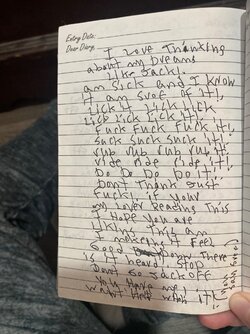 Entry Date:
Dear Diary,
I Love Thinking
about my Dreams
Like Jack!,
am Sick and I KNOW
it am Sure of it!,
Lick it Lick Lick
Lick Lick Lick it!,
Fuck Fuck Fuck it!,
Suck Suck Suck it!,
rub rub rub rub it
ride ride ride it!,
Do Do Do Do it!,
Dont Think Just
Fuck!, is your
my lover Reading this
I hope you are
Liking this am
making it Feel
Good Down There
is it hear!, Stop
Dont Go Jack OFF
You have me!,
want her when it!,